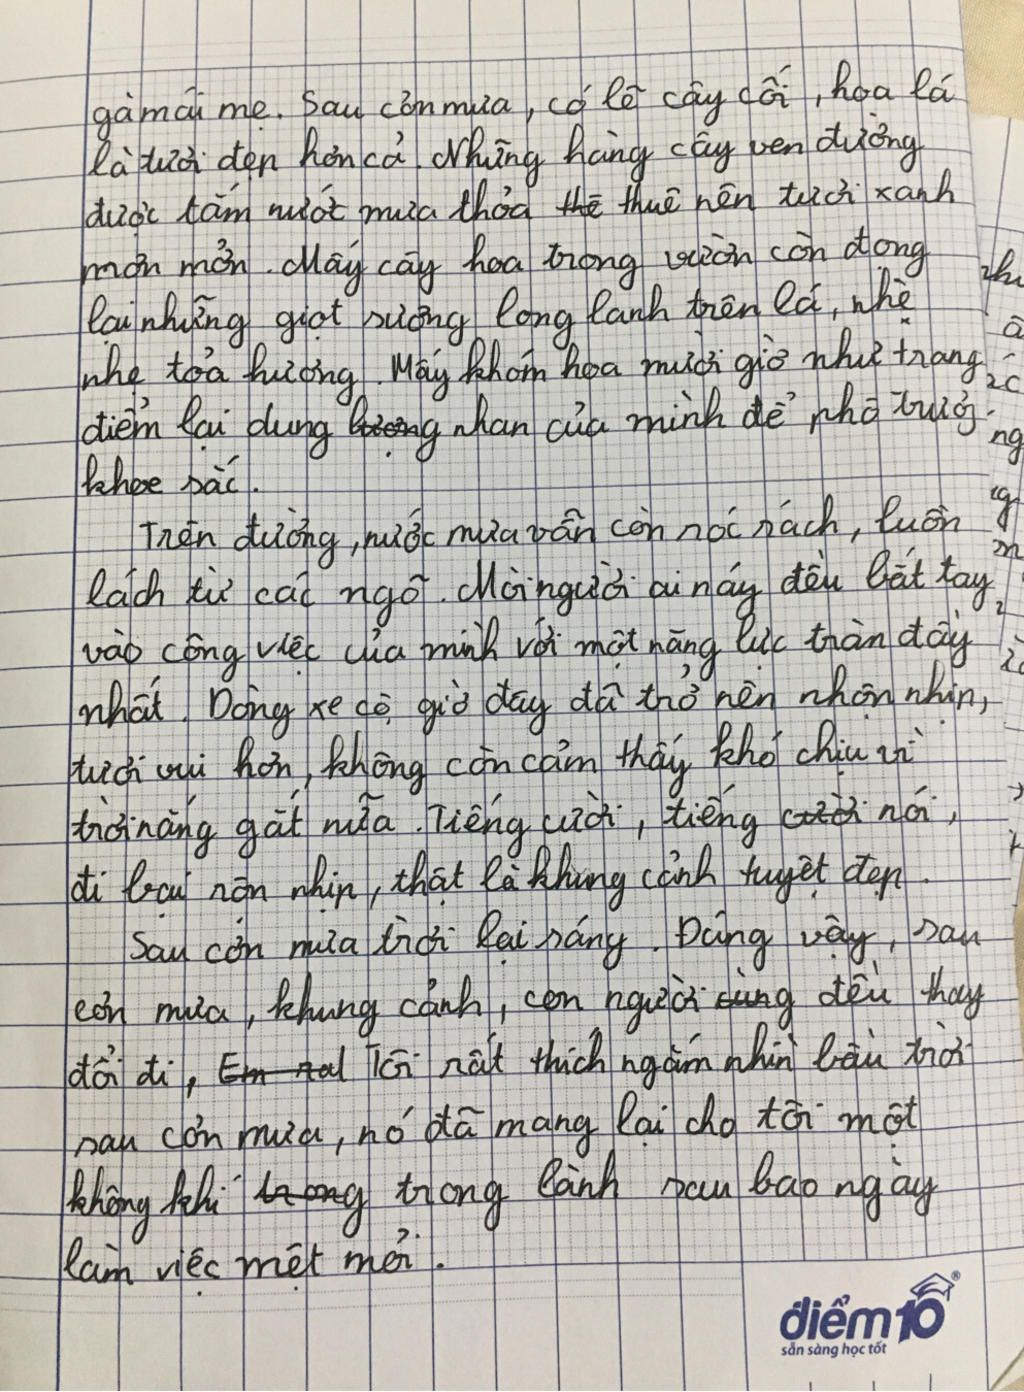 gà mái mẹ. Sau cơn mưa, có lẽ cây cối, hoa lá
là tươi đẹp hơn cả. Những hàng cây ven đường
được tắm nước mưa thỏa thê thuê nên tươi xanh
mơn mởn. Mấy cây hoa trong vườn còn đọng
lại những giọt sương long lanh trên lá, nhè
nhẹ tỏa hương. Mấy khóm hoa mười giờ như trang
điểm lại dung lượng nhan của mình để phô trương
khoe sắc.
Trên đường, nước mưa vẫn còn róc rách, luồn
lách từ các ngõ. Mọi người ai nấy đều bắt tay
vào công việc của mình với một năng lực tràn đầy
nhất. Dòng xe cộ giờ đây đã trở nên nhộn nhịp,
tươi vui hơn, không còn cảm thấy khó chịu vì
trời nắng gắt nữa. Tiếng cười, tiếng cười nói,
đi lại rộn nhịp, thật là khung cảnh tuyệt đẹp.
Sau cơn mưa trời lại sáng. Đúng vậy, sau
cơn mưa, khung cảnh, con người cùng đều thay
đổi đi, Em rất Tôi rất thích ngắm nhìn bầu trời
sau cơn mưa, nó đã mang lại cho tôi một
không khí trong trong lành sau bao ngày
làm việc mệt mỏi.
điểm10®
sẵn sàng học tốt